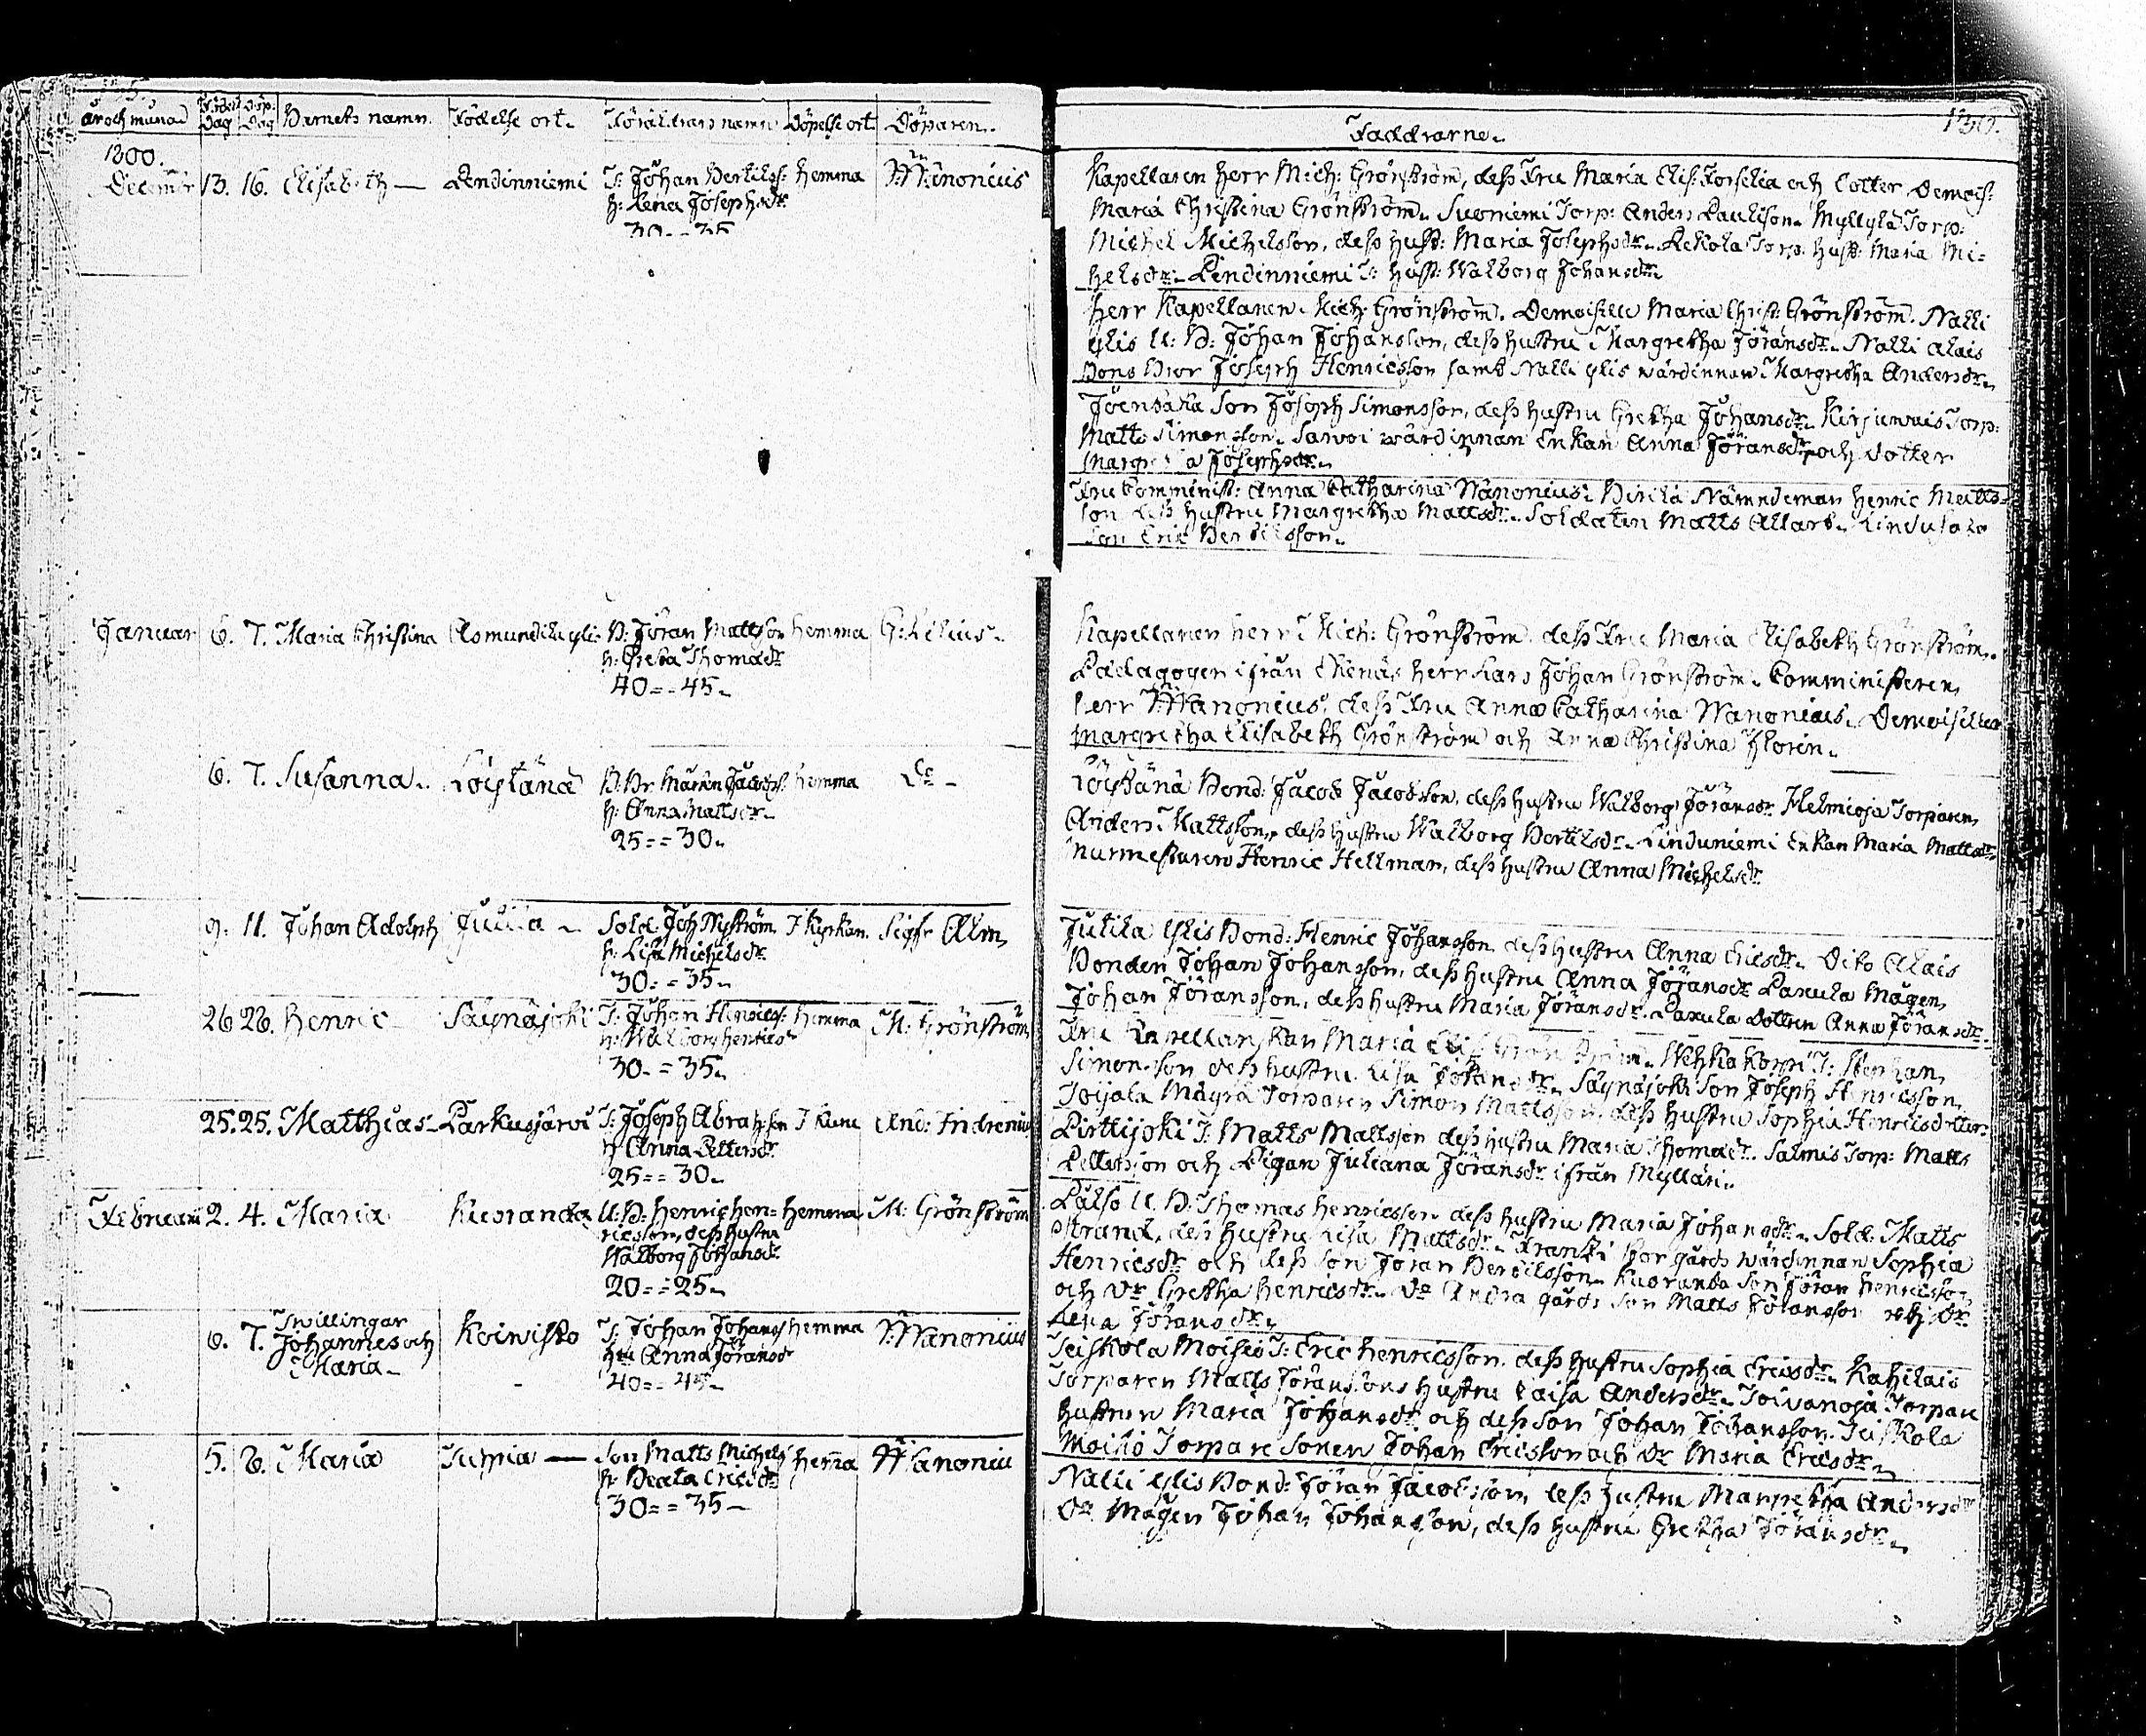 år och månad Födelse Dag Döp. Dag Barnets namn. Födelse ort. Föräldrars namn Döpelse ort Döparen.
1800.
December 13. 16. Elisabeth Lendinniemi T: Johan Bertilss: hemma Wänonius
h: Lena Josephsdr
30 - 35
Januar 6. 7. Maria Christina Asmundila ylis B: Jöran Mattsson hemma G: Lilius.
h: Greta Thomadr
40 = 45.
6. 7. Susanna. Löystänä B: Br. Mårten Jacobss. hemma Do
h: Anna Mattsdr
25 = = 30.
9. 11. Johan Adolph Sold. Joh Nyström I Kyrkan. Sigfr Alm
h: Lisa Michelsdr
30 = 35.
26 26. Henric Säynäjoki T: Johan Henricss: hemma M: Grönström
h: Walborg henricsdr
30. = 35.
25. 25. Matthias Parkusjärvi T: Joseph Abrahss And: Indrenius
h Anna Pettersdr
25 = = 30.
Februari 2. 4. Maria Kuoranda U: B: Henric Hen= hemma M: Grönström
ricsson, dess hustru
Walborg Johansdr
20 = = 25.
6. 7. Twillingar
Johannes och Koivisto T: Johan Johanss hemma Wanonius
Maria. hu Anna Jöransdr
40 = = 45.
5. 6. Maria Son Matts Michelss hema Wanoniu
h: Beata Ericsdr
30 = = 35
Faddrarne.
Kapellanen Herr Mich: Grönström, dess Fru Maria Elis: Forselia och Dotter Demois:
Maria Christina Grönström. Suoniemi Torp: Anders Paulison. Myllylä Torp:
Michel Michelsson, dess hust: Maria Josephsdr. Torp. hust: Maria Mi=
helsdr. Lendinniemi T: hust: Walborg Johansdr
Herr Kapellanen Mich. Grönström. Demoiselle Maria Christ: Grönström. Nalli
ylis U: B: Johan Johansson, dess hustru Margretha Jöransdr. Nalli alais
Bons Bror Joseph Henricsson samt Nalli ylis wärdinnan Margretha Andersdr.
son Joseph Simonsson, dess hustru Gretha Johansdr. Torp:
Matts Simonsson. Sawoi wärdinnan Enkan Anna Jöransdr och dotter
Josephsdr.
Fru Comminist: Anna Catharina Wänonius. Nämndeman Henric Matts=
son dess hustru Margretha Mattsdr. Soldaten Matts Allart.
son Eric Bertilsson.
Kapellanen herr Mich: Grönström dess Fru Maria Elisabeth Grönström.
Pädagogen ifrån Ekenäs herr Lars Johan Grönström. Comministeren
herr Wanonius, dess Fru Anna Catharina Wanonius. Demoiseller
Margretha Elisabeth Grönström och Anna Christina Florin.
Löystänä Bond: Jacob Jacobsson, dess hustru Walborg Jöransdr Helmioja Torparen
Anders Mattsson, dess hustru Walborg Bertilsdr. Linduniemi Enkan Maria Mattsdr
Henric Hellman, dess hustru Anna Michelsdr
Jutila ylis Bond: Henric Johansson dess hustru Anna Ericsdr. Dito Alais
Bonden Johan Johansson, dess hustru Anna Jöransdr Paxula Mågen
Johan Jöransson, dess hustru Maria Jöransdr. Paxula Dottren Anna Jöransdr
Fru Kapellanskan Maria Elis Grönström.
Simonsson dess hustru Lisa Johansdr. Säynäjoki Son Joseph Henricsson
Toijala Mäyrä Torparen Simon Mattsson dess hustru Sophia Henricsdotter
Pirttijoki T: Matts Mattsson dess hustru Maria Thomadr. Salmis Torp: Matts
Pettersson och Pigan Juliana Jöransdr ifrån Mylläri.
U. B. Thomas Henricsson dess hustru Maria Johansdr. Sold. Matts
Strand, dess hustru Lisa Mattsdr. Frantti Storgårds wärdinnan Sophia
Henricsdr och dess son Jöran Bertilsson. Kuoranda Son Jöran Henricsson
och Dr Gretha Henricsdr. Do Andra gårds Son Matts Jöransson och Dr
Lena Jöransdr.
Teiskola Moisio T: Eric Henricsson. dess hustru Sophia Ericsdr. Kahilais
Torparen Matts Jöranssons hustru Caisa Andersdr. Toivanoja Torpare
hustrun Maria Johansdr och dess son Johan Johansson. Teiskola
Moisio Torpare Sonen Johan Ericsson och Dr Maria Ericsdr.
Nalli ylis Bond: Jöran Jacobsson, dess hustru Margretha Andersdr
Do Mågen Johan Johansson, dess hustru Gretha Jöransdr.